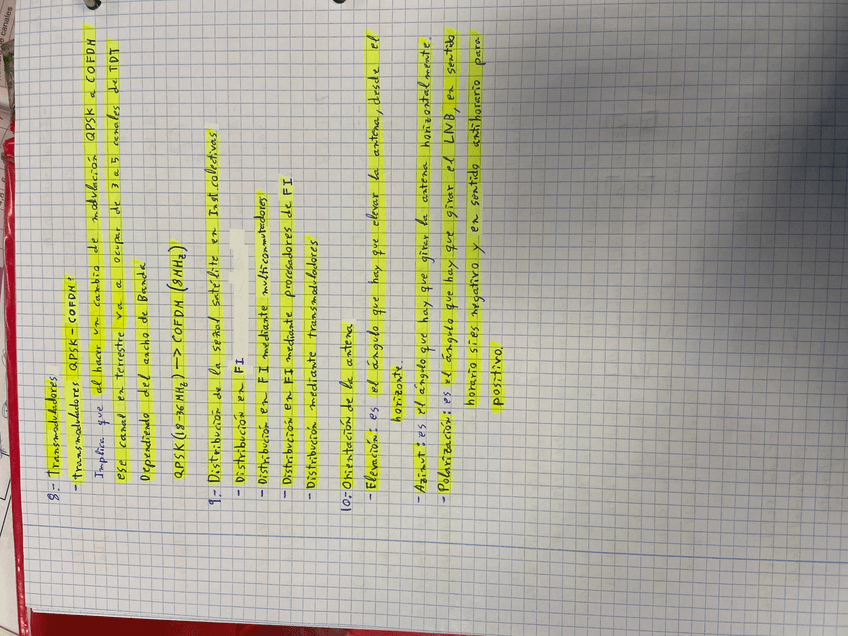 8.- Transmoduladores
- transmoduladores QPSK - COFDM:
Implica que al hacer un cambio de modulación QPSK a COFDM
ese canal en terrestre va a ocupar de 3 a 5 canales de TDT
Dependiendo del ancho de Banda
QPSK (18-36 MHz) -> COFDM (8 MHz)
9.- Distribución de la señal satélite en Inst. colectivas
- Distribución en FI
- Distribución en FI mediante multiconmutadores
- Distribución en FI mediante procesadores de FI
- Distribución mediante transmoduladores
10.- Orientación de la antena
- Elevación: es el ángulo que hay que elevar la antena, desde el
horizonte.
- Azimut: es el ángulo que hay que girar la antena horizontalmente.
- Polarización: es el ángulo que hay que girar el LNB, en sentido
horario si es negativo y en sentido antihorario para
positivo.
canales